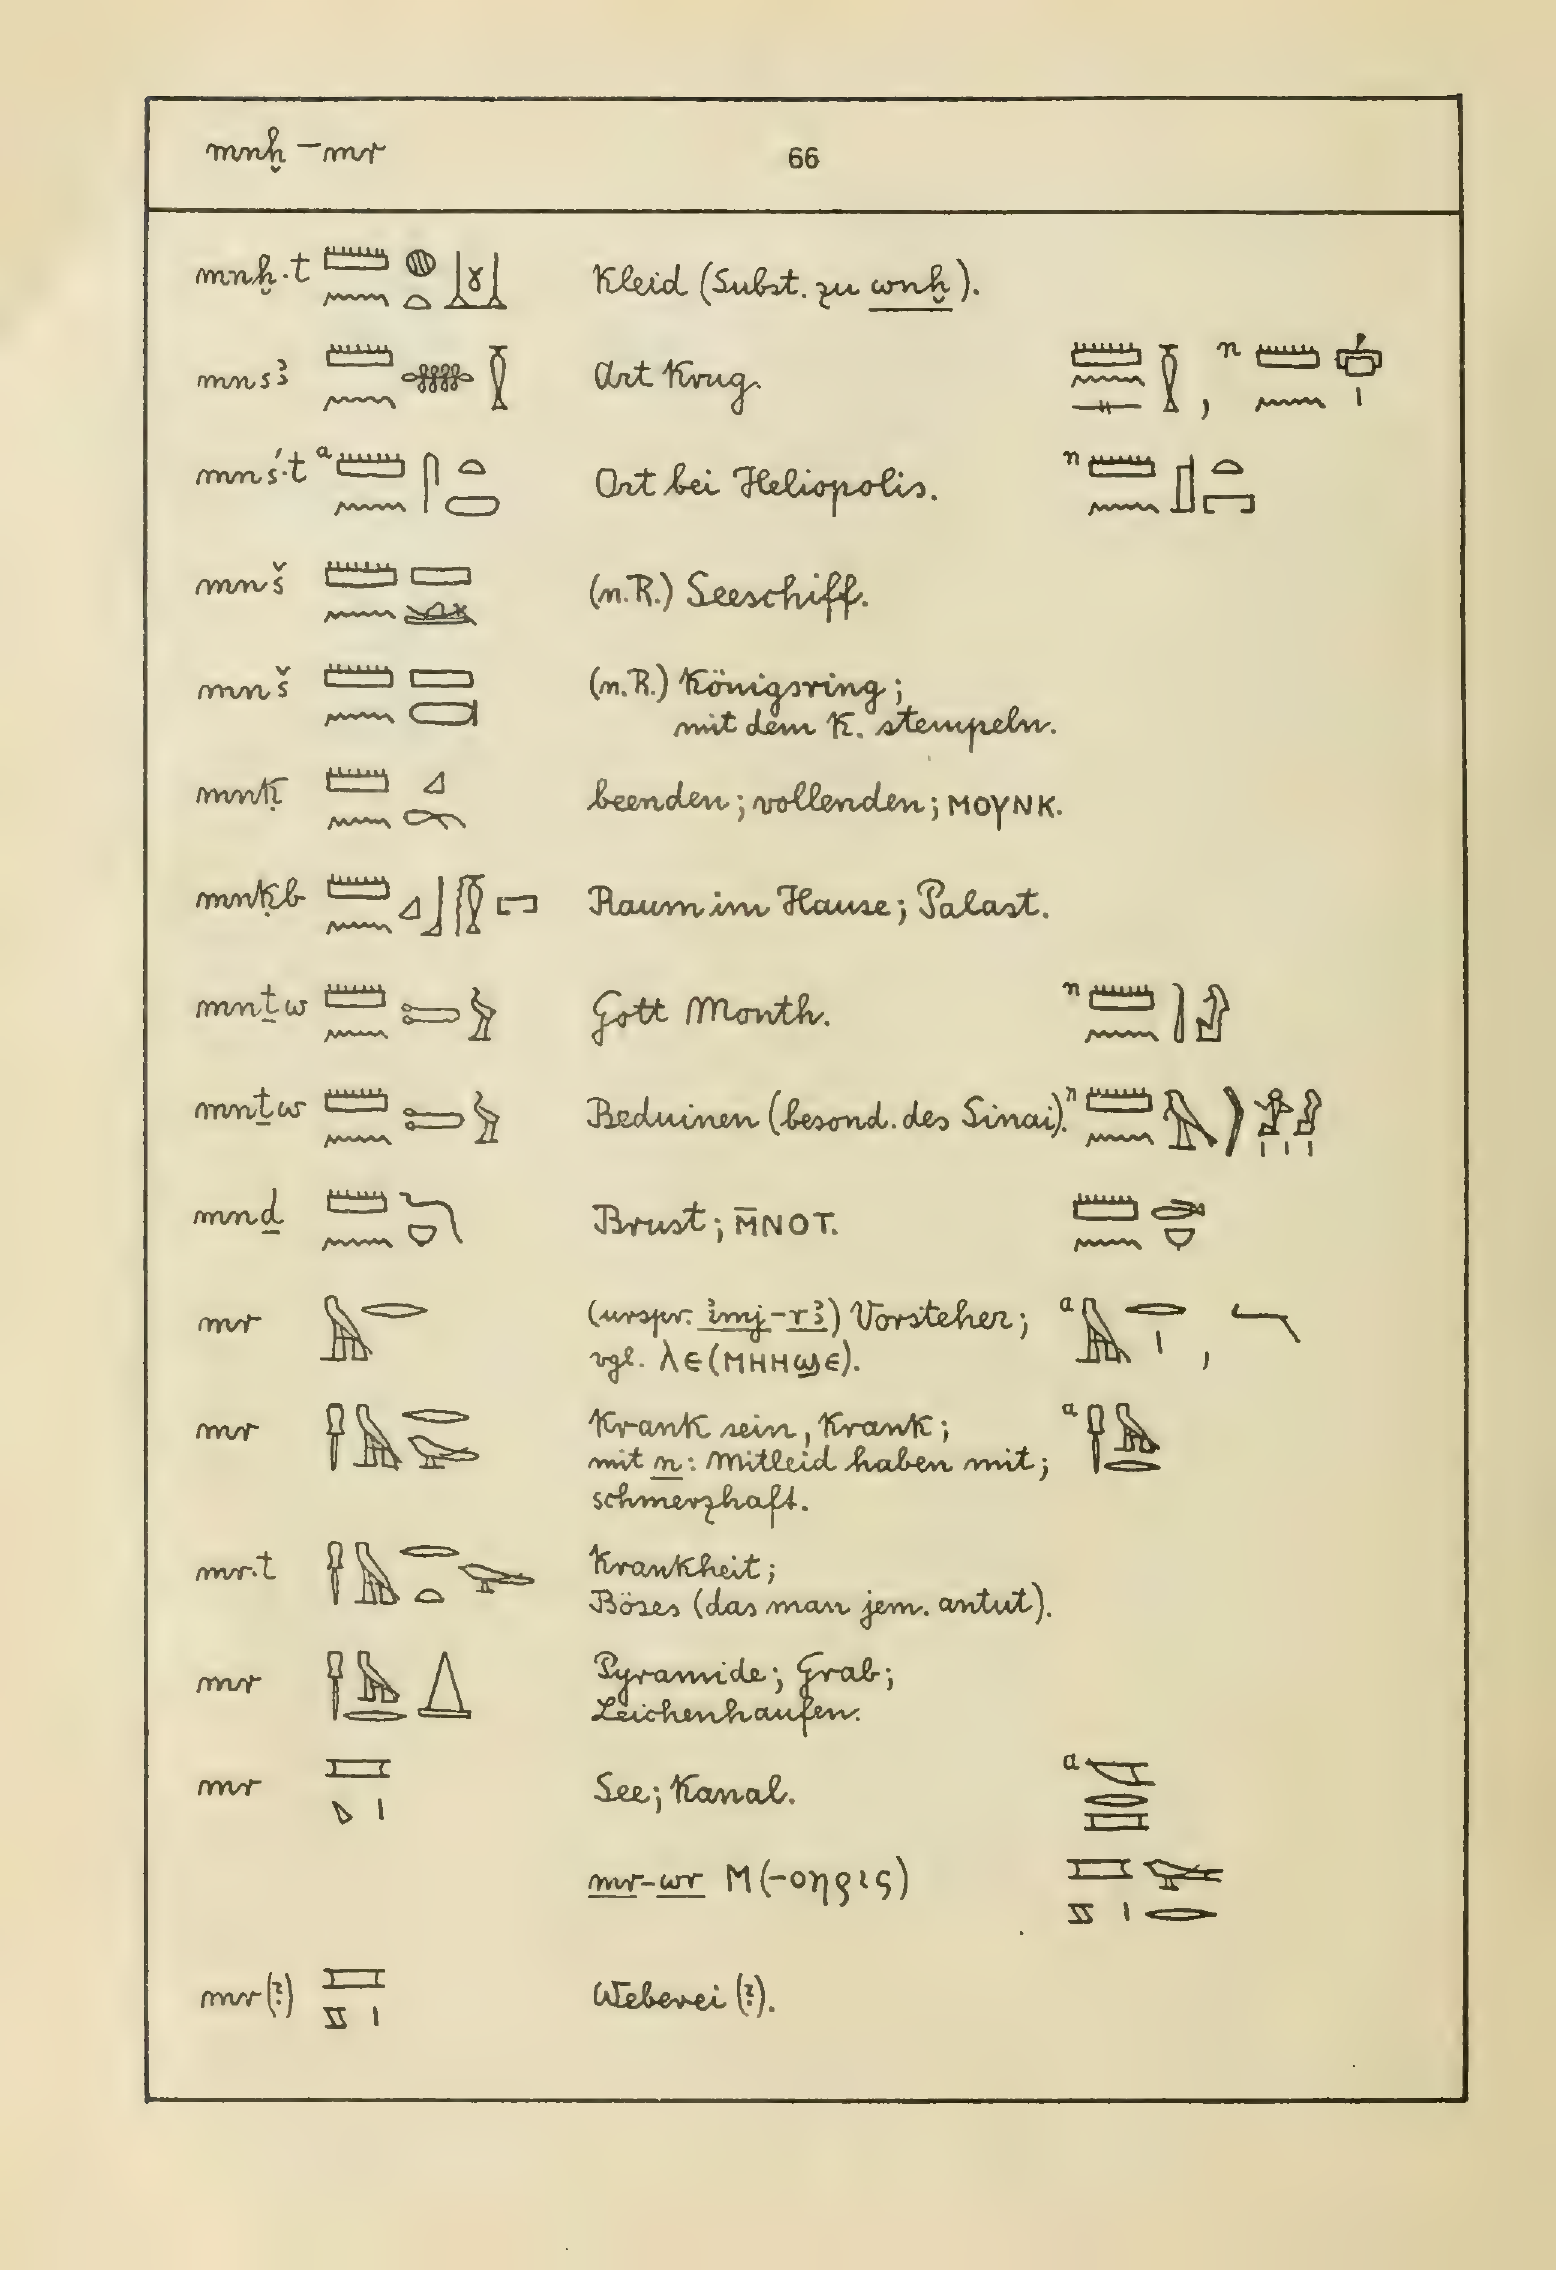 mnḫ – mr 66
mnḫ·t Kleid (Subst. zu wnḫ).
mnsꜣ Art Krug. , n
mnś·t a Ort bei Heliopolis. n
mnš (n.R.) Seeschiff.
mnš (n.R.) Königsring;
mit dem K. stempeln.
mnḳ beenden; vollenden; ⲙⲟⲩⲛⲕ.
mnḳb Raum im Hause; Palast.
mnṯw Gott Month. n
mnṯw Beduinen (besond. des Sinai). n
mnḏ Brust; ⲙ̄ⲛⲟⲧ.
mr (urspr. imj-rꜣ) Vorsteher; a ,
vgl. ⲗⲉ(ⲙⲏⲏϣⲉ).
mr Krank sein, Krank; a
mit n: Mitleid haben mit;
schmerzhaft.
mr.t Krankheit;
Böses (das man jem. antut).
mr Pyramide; Grab;
Leichenhaufen.
mr See; Kanal. a
mr-wr M(-οηρις)
mr(?) Weberei (?).